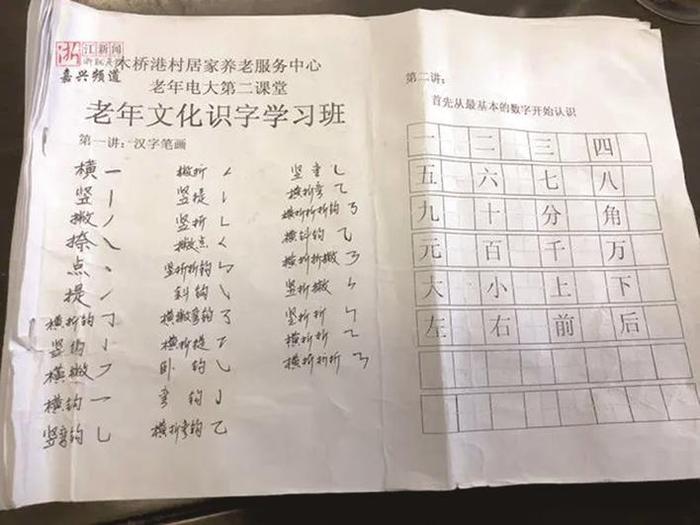 浙江新闻
嘉兴频道
木桥港村居家养老服务中心
老年电大第二课堂
老年文化识字学习班
第一讲：汉字笔画
横 ㇐ 撇折 ㇜ 竖弯 ㇄
竖 丨 竖提 ㇙ 横折弯 ㇍
撇 ㇒ 竖折 ㇗ 横折折折钩 ㇡
捺 ㇏ 撇点 ㇛ 横斜钩 ⺄
点 ㇔ 竖折折钩 ㇉ 横折折撇 ㇋
提 ㇀ 斜钩 ㇂ 竖折撇 ㇞
横折钩 ㇆ 横撇弯钩 ㇌ 竖折折 ㇞
竖钩 亅 横折提 ㇊ 横折折 ㇍
横撇 ㇇ 卧钩 ㇃ 横折折折 ㇎
横钩 ㇖ 弯钩 ㇁
竖弯钩 ㇟ 横折弯钩 ㇈
第二讲：
首先从最基本的数字开始认识
一 二 三 四
五 六 七 八
九 十 分 角
元 百 千 万
大 小 上 下
左 右 前 后